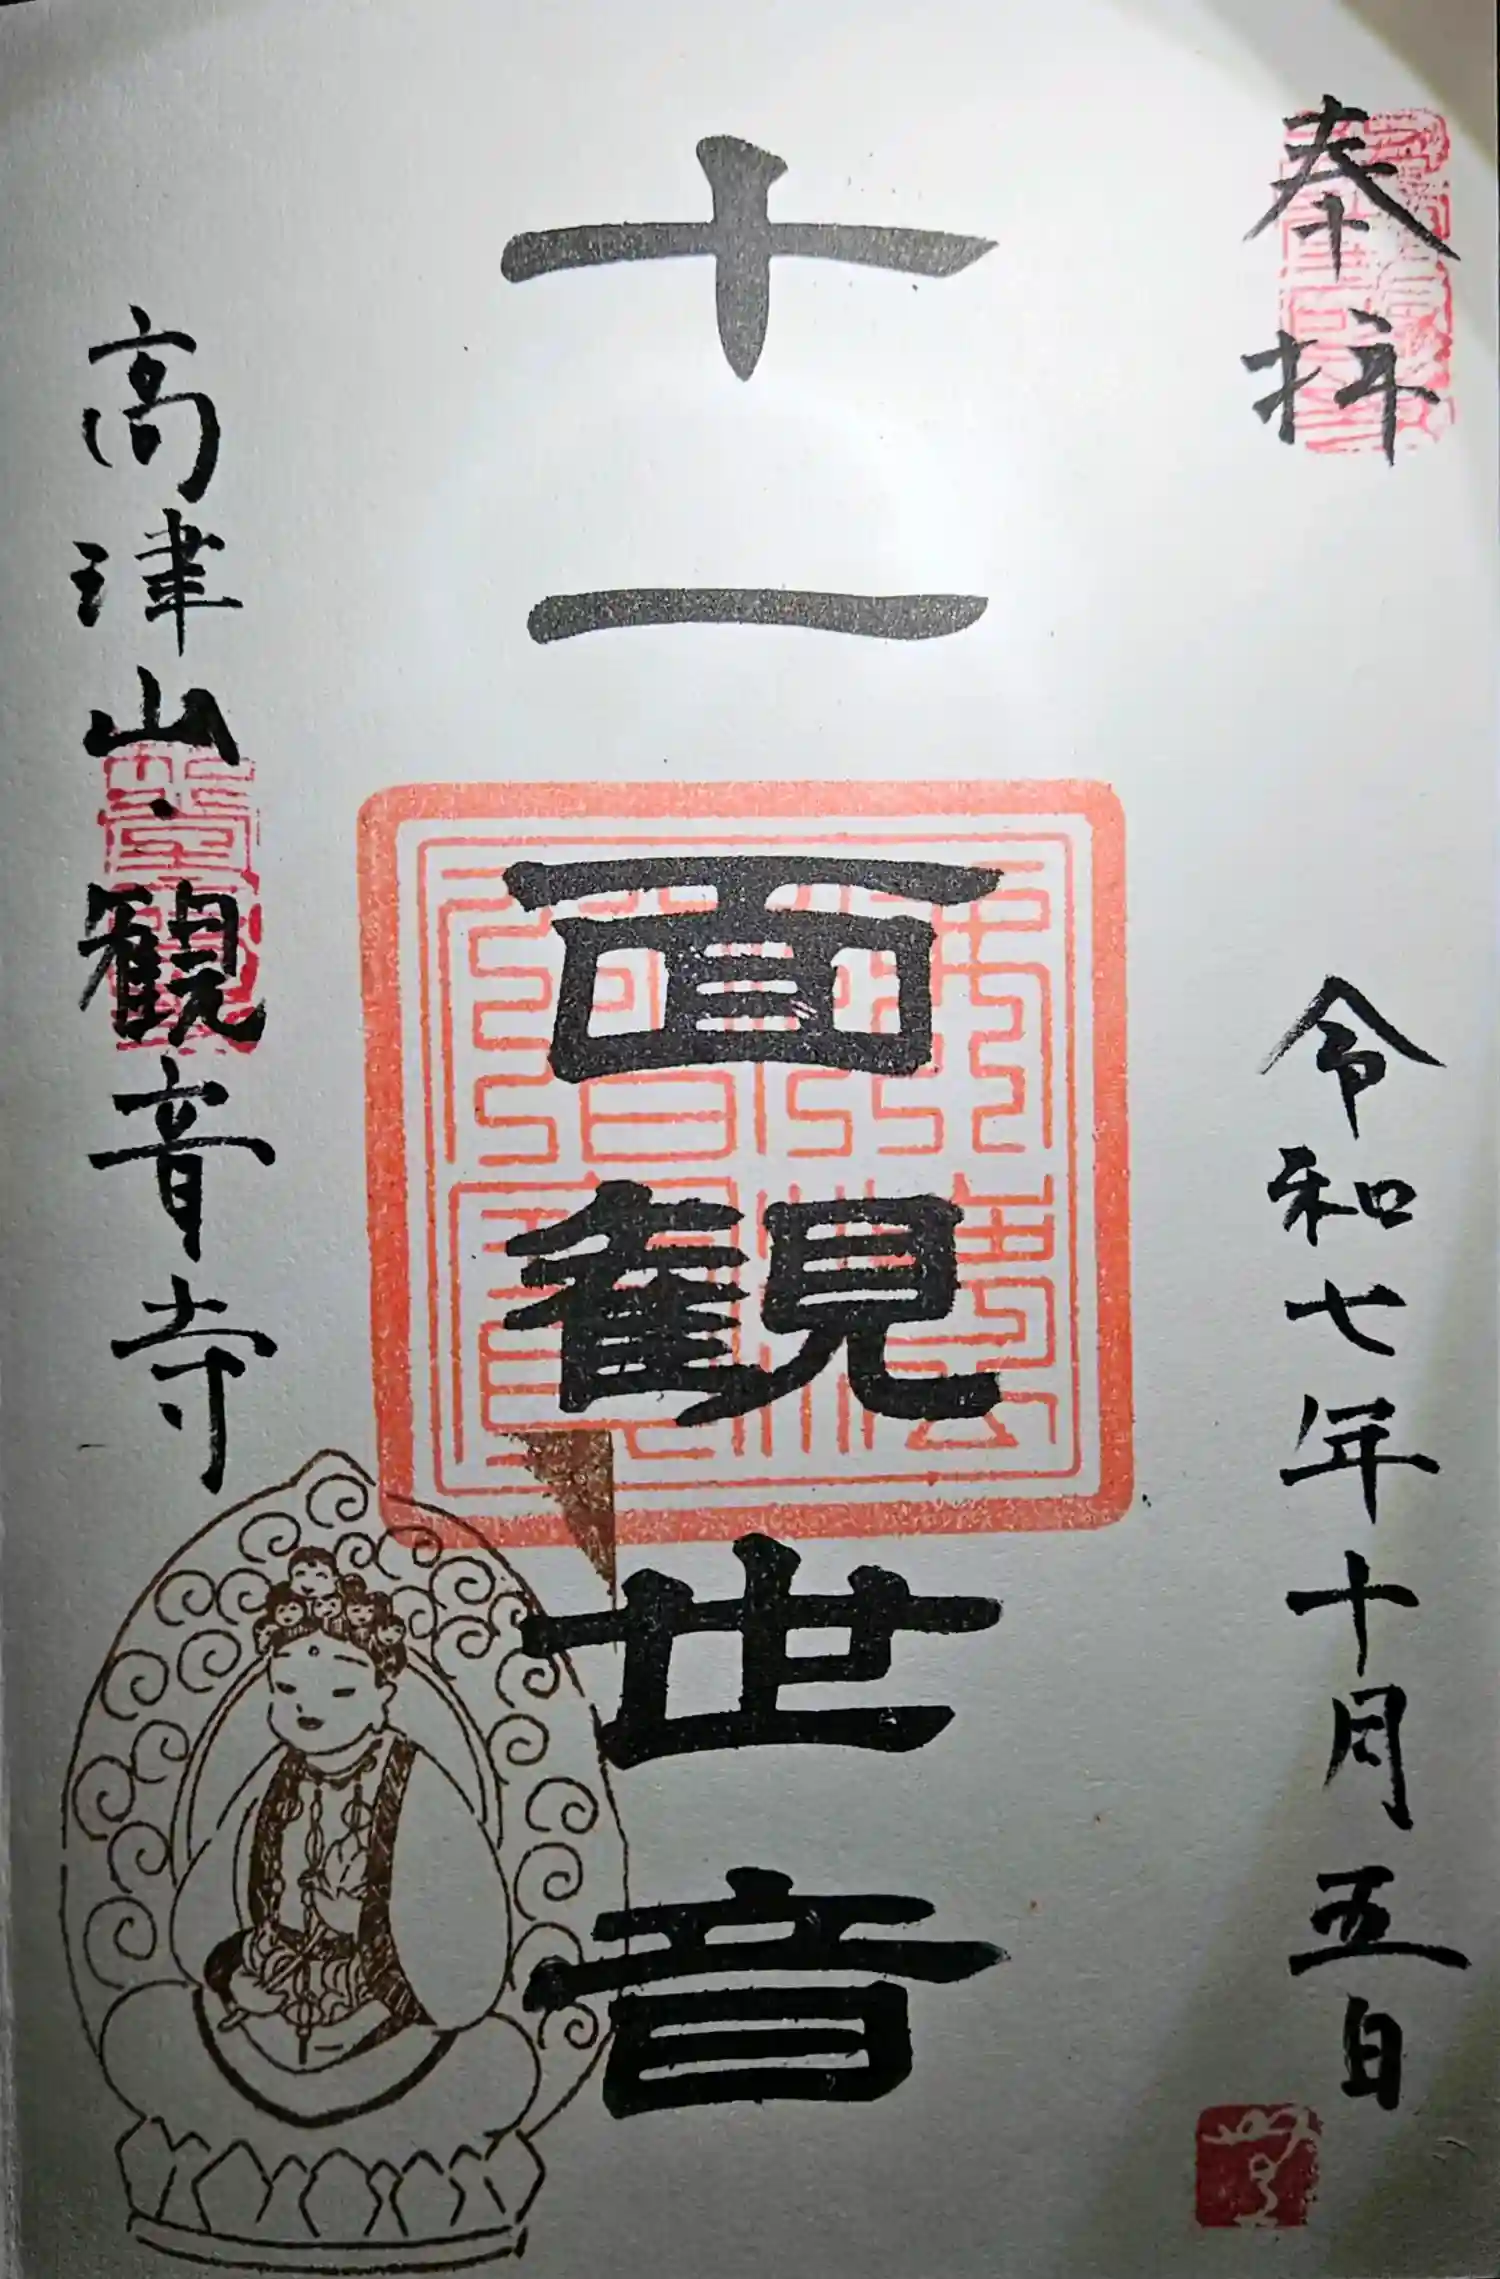 奉拝
令和七年十月五日
十一面観世音
高津山・観音寺